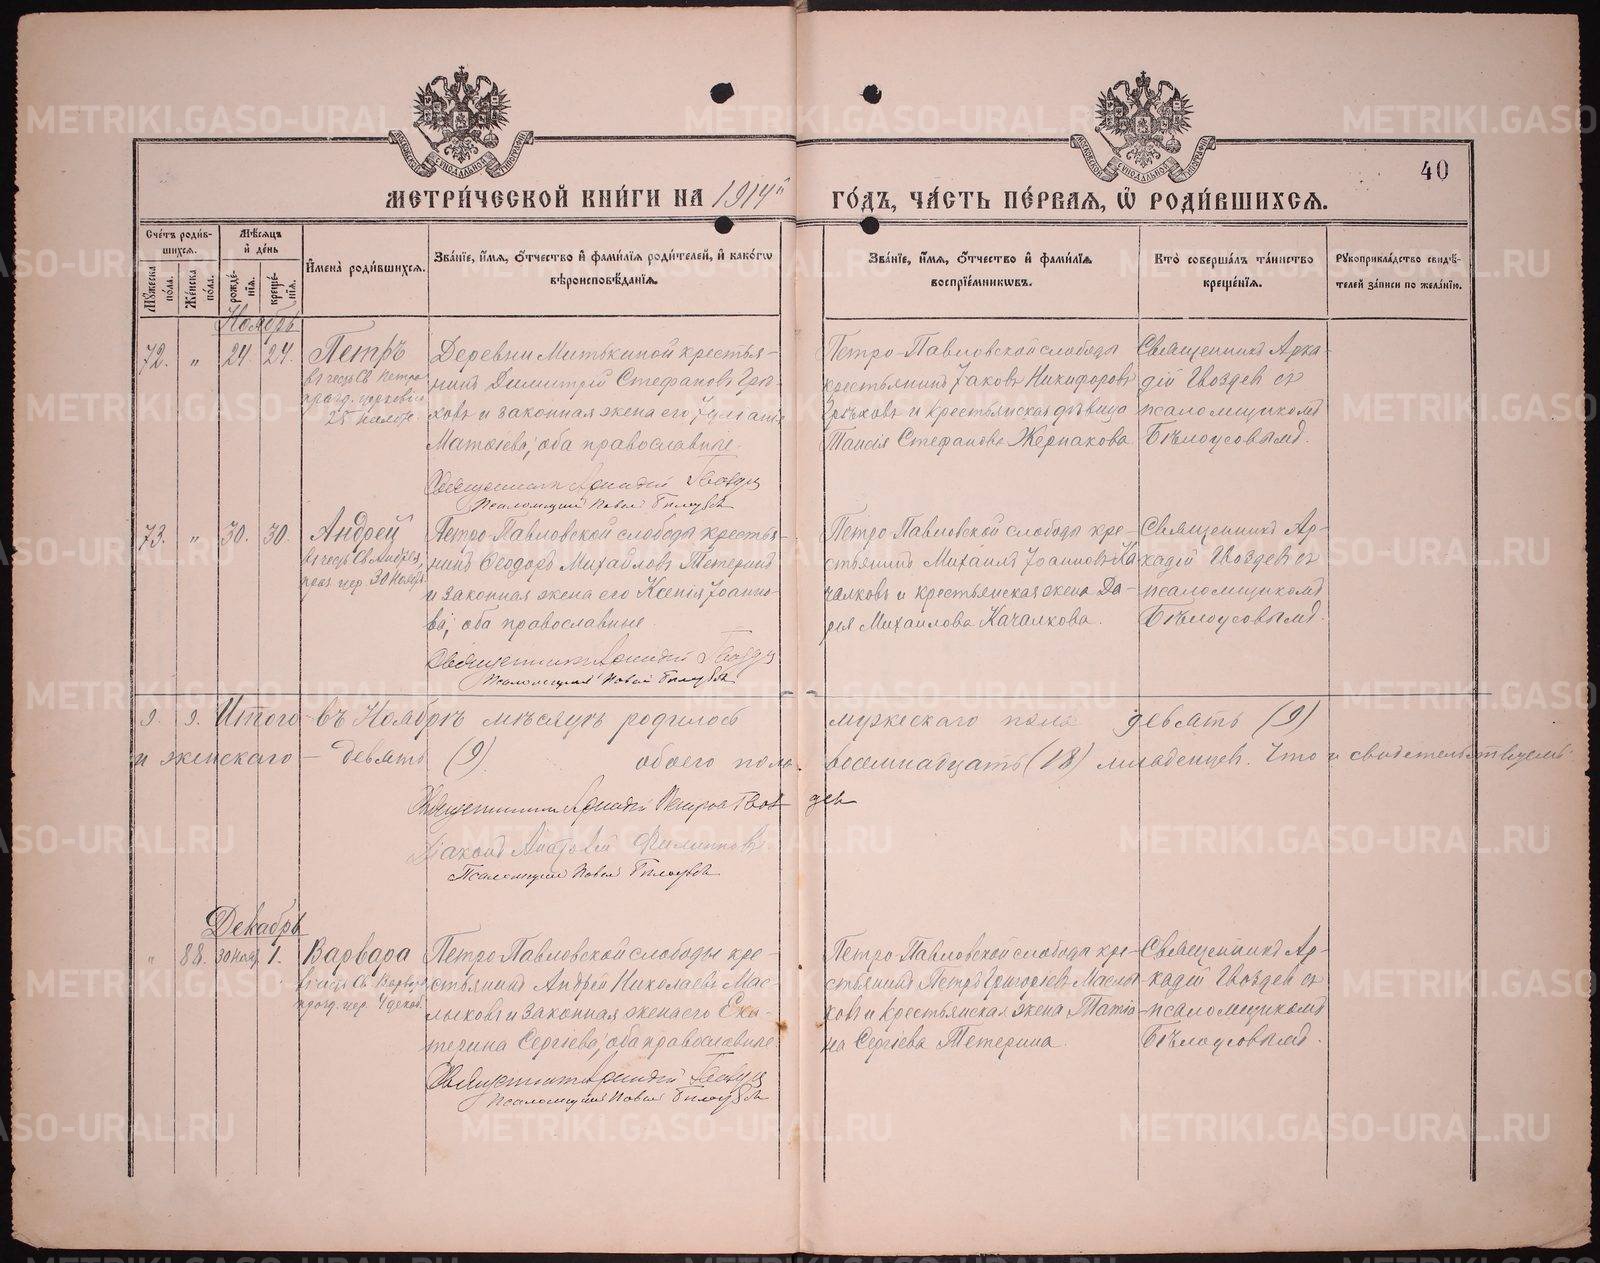 МЕТРИ́ЧЕСКОЙ КНИ́ГИ НА 1914й ГО́ДЪ, ЧА́СТЬ ПЕ́РВАЯ, Ѡ РОДИ́ВШИХСЯ.
40
Сче́тъ роди́в-
шихся.
Мѣ́сяцъ
и҆ де́нь
Мꙋ́жеска
по́ла.
Же́нска
по́ла.
рожде́-
нїя.
креще́-
нїя.
И҆мена̀ роди́вшихся.
Зва́нїе, и҆́мѧ, ѻ҆́тчество и҆ фами́лїѧ роди́телей, и҆ како́гѡ
вѣроисповѣ́данїѧ.
Зва́нїе, и҆́мѧ, ѻ҆́тчество и҆ фами́лїѧ
воспрїе́мникѡвъ.
Кто̀ соверша́лъ та́инство
креще́нїѧ.
Рꙋкоприкла́дство свидѣ́-
телей за́писи по жела́нїю.
Ноябрь
72. " 24 24. Петръ
въ честь Св. Петра
празд. церковью
25 ноября
Деревни Митькиной крестья-
нинъ Димитрій Стефановъ Грѣ-
ховъ и законная жена его Іуліанія
Матѳіева, оба православные.
Священникъ Аркадій Гвоздевъ
Псаломщикъ Павел Белоусовъ
Петро-Павловской слободы
крестьянинъ Іаковъ Никифоровъ
Грѣховъ и крестьянская дѣвица
Таисія Стефанова Жернакова
Священникъ Арка-
дій Гвоздевъ съ
псаломщикомъ
Бѣлоусовымъ.
73. " 30. 30. Андрей
въ честь Св. Андрея,
праз. цер. 30 Ноября
Петро-Павловской слободы крестья-
нинъ Ѳеодоръ Михайловъ Тетеринъ
и законная жена его Ксенія Іоанно-
ва, оба православные.
Священникъ Аркадій Гвоздевъ
Псаломщикъ Павел Белоусовъ
Петро-Павловской слободы кре-
стьянинъ Михаилъ Іоанновъ Ка-
чалковъ и крестьянская жена Да-
рья Михайлова Качалкова.
Священникъ Ар-
кадій Гвоздевъ съ
псаломщикомъ
Бѣлоусовымъ.
9. 9. Итого въ Ноябрѣ мѣсяцѣ родилось мужескаго пола девять (9)
и женскаго - девять (9) обоего пола восемнадцать (18) младенцев. Что и свидетельствуемъ:
Священникъ Аркадій Петров Гвоздев
Діаконъ Анатолій Филипповъ
Псаломщикъ Павел Белоусовъ
Декабрь
" 88. 30 нояб. 1. Варвара
въ честь Св. Варвары
празд. цер. 4 декаб.
Петро-Павловской слободы кре-
стьянинъ Андрей Николаевъ Мас-
лыковъ и законная жена его Ека-
терина Сергіева, оба православные
Священникъ Аркадій Гвоздевъ
Псаломщикъ Павел Белоусовъ
Петро-Павловской слободы кре-
стьянинъ Петръ Григоріевъ Маслы-
ковъ и крестьянская жена Татіа-
на Сергіева Тетерина.
Священникъ Ар-
кадій Гвоздев съ
псаломщикомъ
Бѣлоусовымъ.
METRIKI.GASO-URAL.RU